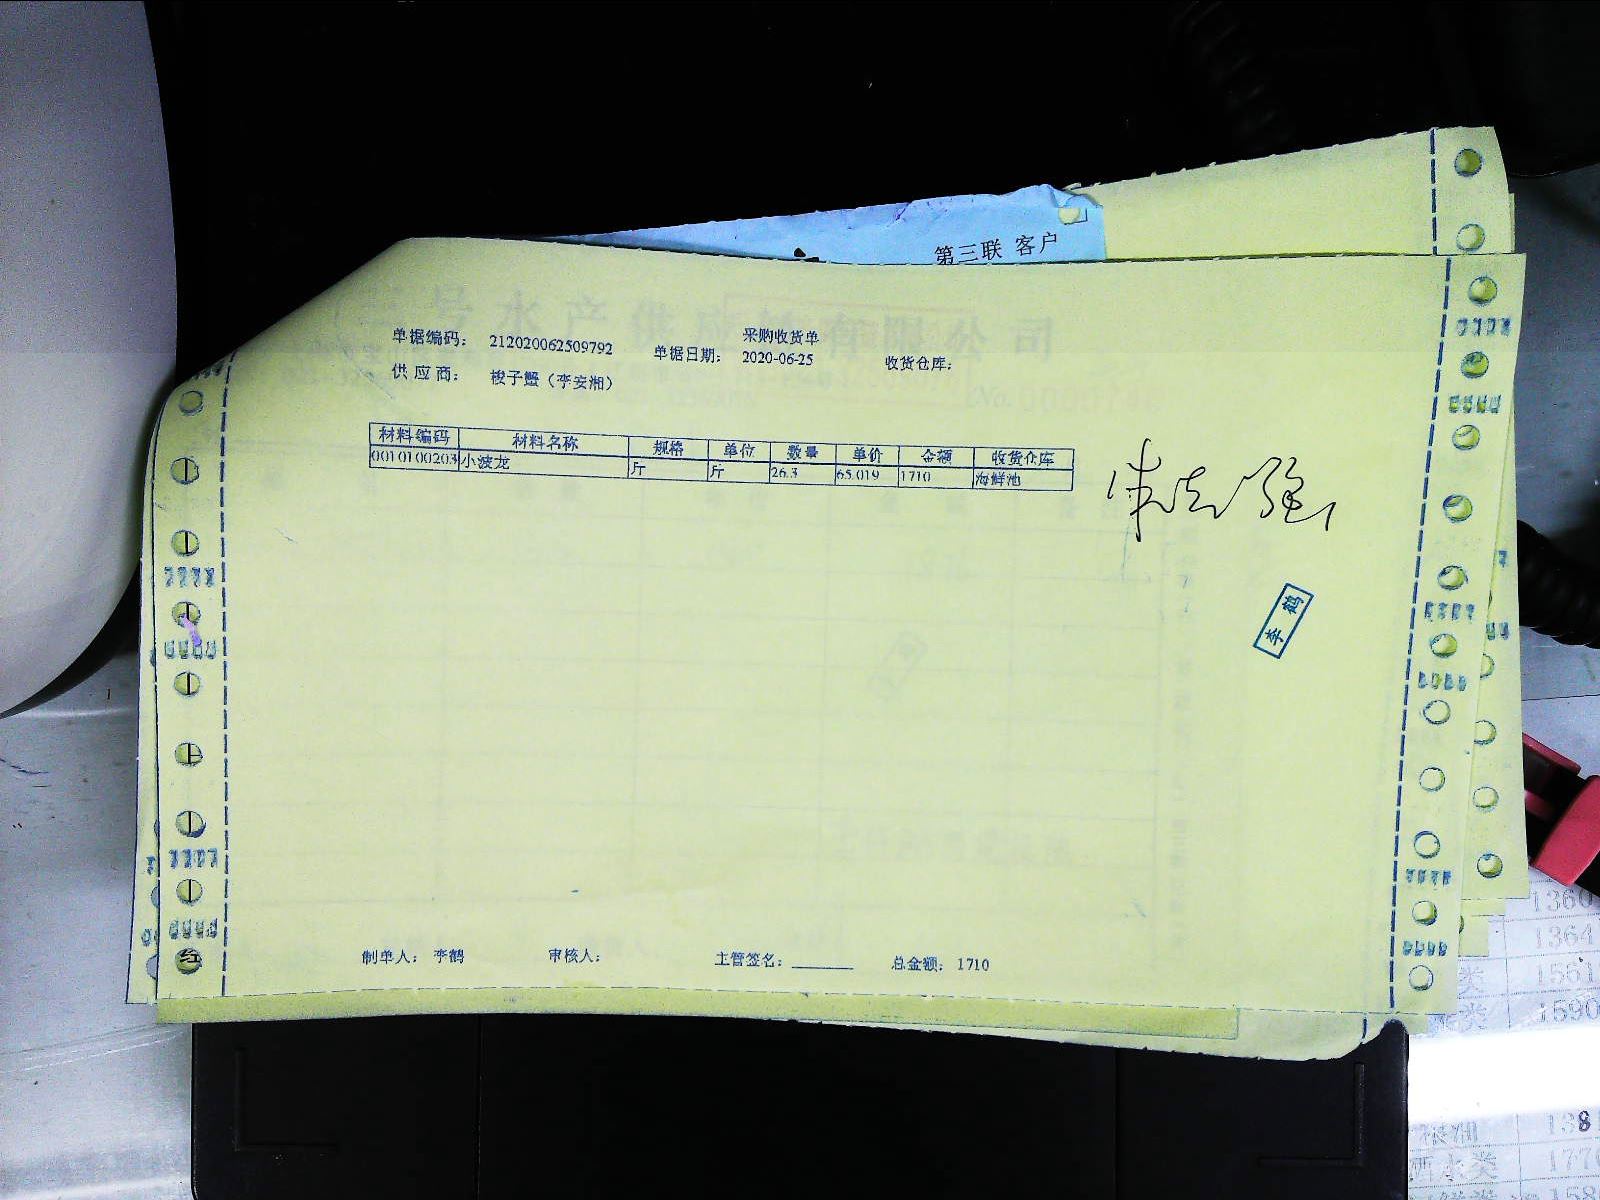 第三联 客户
采购收货单
单据编码： 212020062509792 单据日期： 2020-06-25 收货仓库：
供 应 商： 梭子蟹（李安湘）
材料编码 材料名称 规格 单位 数量 单价 金额 收货仓库
0010100203 小波龙 斤 斤 26.3 65.019 1710 海鲜池
李鹤
制单人： 李鹤 审核人： 主管签名：______ 总金额： 1710
红
1360
1364
类 1561
类 1590
1381
西水类 1770